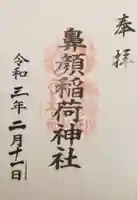 奉拝
鼻顔稲荷神社
令和三年二月十一日